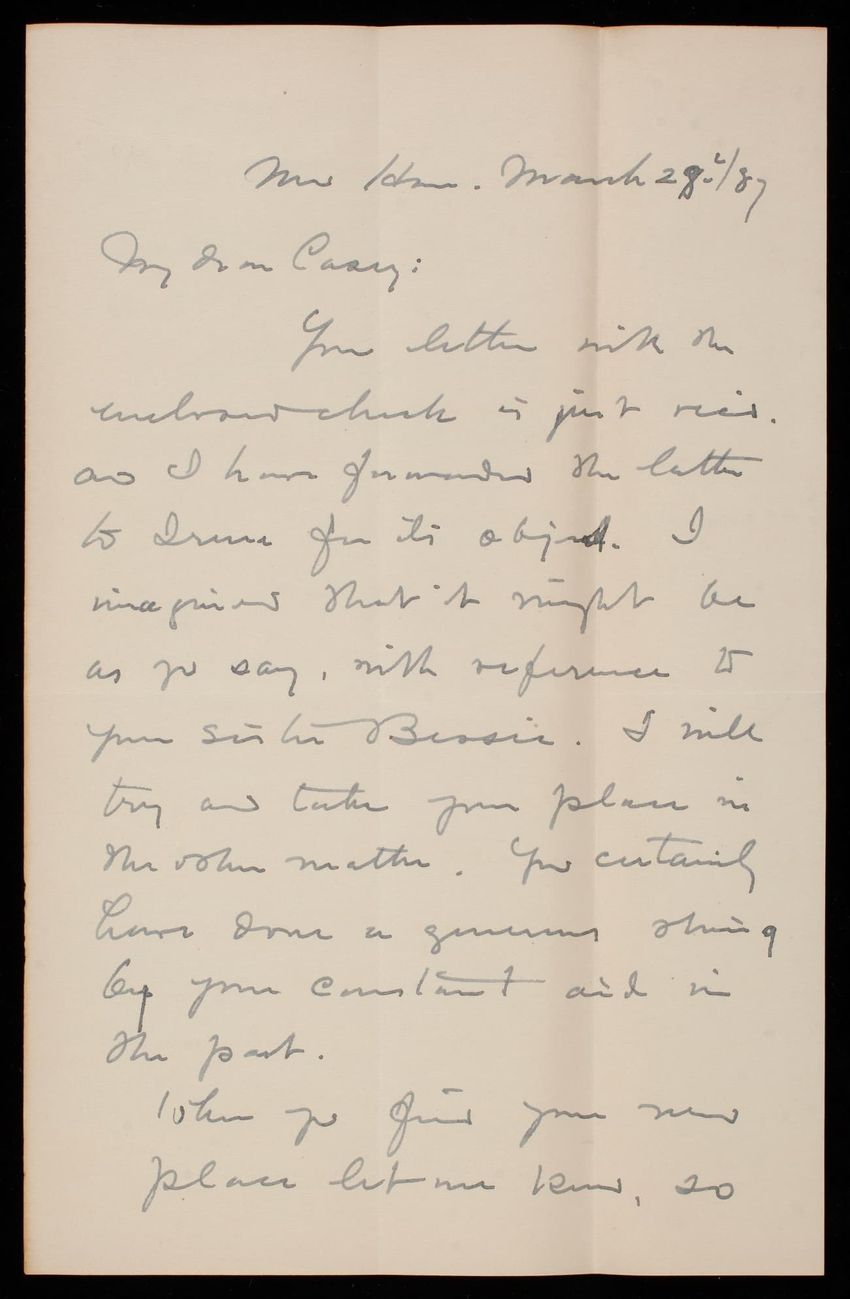 New Haven. March 29th/87
My dear Casey:
Your letter with the
enclosed check is just rec'd.
and I have forwarded the latter
to Irene for its object. I
imagined that it might be
as yo say, with reference to
your sister Bessie. I will
try and take your place in
the other matter. You certainly
have done a generous thing
by your constant aid in
the past.
When yo find your new
place let me know, so